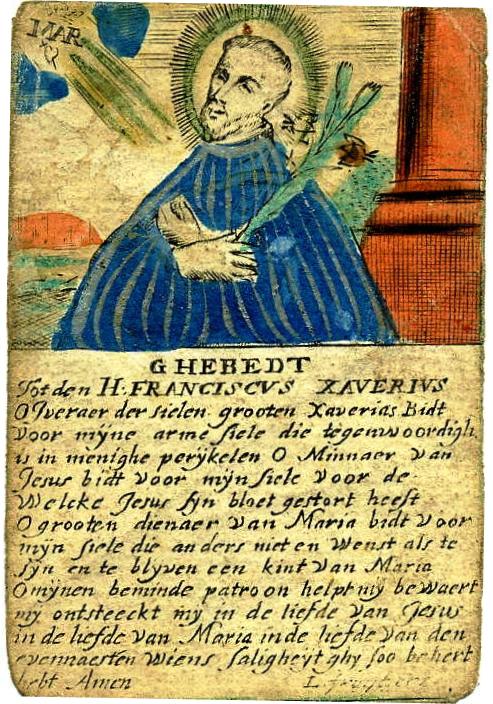 MAR
GHEBEDT
Tot den H. FRANCISCVS XAVERIVS
O Jveraer der sielen grooten Xaverias Bidt
voor mijne arme siele die tegenwoordigh
is in menighe perijkelen O Minnaer van
Jesus bidt voor mijn siele voor de
Welcke Jesus sijn bloet gestort heeft
O grooten dienaer van Maria bidt voor
mijn siele die anders niet en Wenst als te
sijn en te blyven een kint van Maria
O mijnen beminde patroon helpt mij bewaert
mij ontsteeckt mij in de liefde van Jesus
in de liefde van Maria in de liefde van den
evennaesten Wiens saligheyt ghy soo behert
hebt Amen